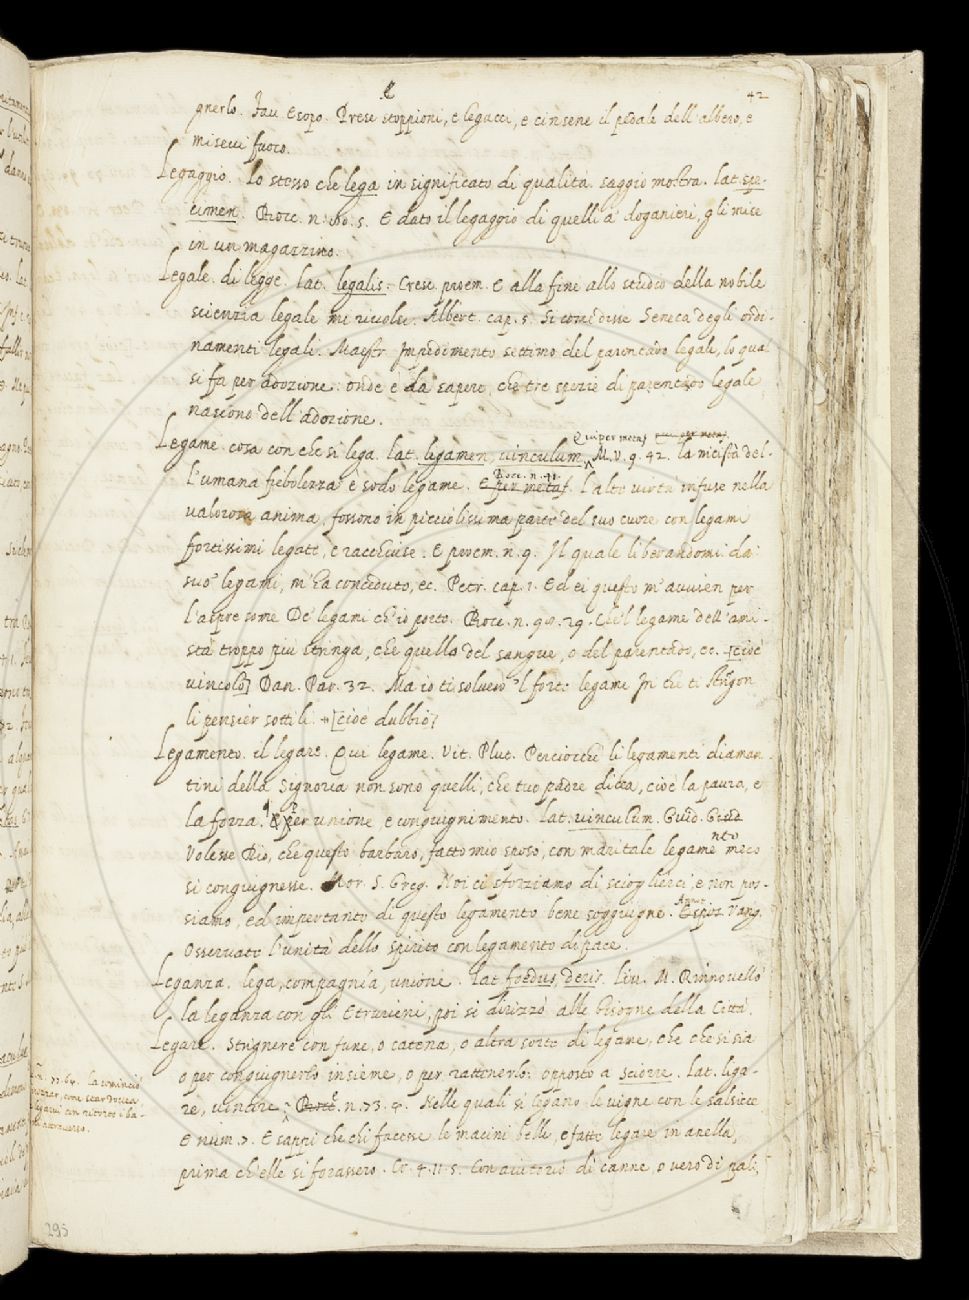 42
gnerlo. Fav. Esopo. Prese stoppioni, e legacci, e cinsene il pedale dell' albero, e
misevi fuoco.
Legaggio. Lo stesso che lega in significato di qualità. saggio mostra. lat. spe-
cimen. Bocc. n. 80. 5. E dato il legaggio di quelli a' doganieri, gli mise
in un magazzino.
Legale. di legge. lat. legalis. Cresc. proem. E alla fine allo studio della nobile
scienzia legale mi rivolsi. Albert. cap. 5. Si come disse Seneca degli ordi-
namenti legali. Maestr. Impedimento settimo del parentado legale, lo qua
si fa per adozione: onde è da sapere, che tre spezie di parentado legale
nascono dell' adozione.
Qui per metaf.
Legame. cosa con che si lega. lat. legamen, vinculum, M.V. 9. 42. la nicistà del-
l' umana fiebolezza è sodo legame. E per metaf. l' alte virtù infuse nella
Bocc. n. 41.
valorosa anima, fossono in picciolissima parte del suo cuore con legami
fortissimi legate, e racchiuse. E proem. n. 9. Il quale liberandomi da'
suo' legami, m' ha conceduto, ec. Petr. cap. 1. Ed ei questo m' avvien per
l' aspre some De' legami ch' io porto. Bocc. n. 98. 29. Che 'l legame dell' ami-
stà troppo più stringa, che quello del sangue, o del parentado, ec. [cioè
vincolo] Dan. Par. 32. Ma io ti solverò 'l forte legame In che ti stringon
li pensier sottili. [cioè dubbio]
Legamento. il legare. Qui legame. Vit. Plut. Perciocchè li legamenti diaman-
tini della Signoria non sono quelli, che tuo padre dicea, cioè la paura, e
la forza. Per unione, e congiugnimento. lat. vinculum. Guid. Giud.
Volesse Dio, che questo barbaro, fatto mio sposo, con maritale legamento meco
si congiugnesse. Mor. S. Greg. Noi ci sforziamo di sciogliêrci, e non pos-
siamo, ed impertanto di questo legamento bene soggiugne. Vang.
Osservate l' unità dello spirito con legamento di pace.
Leganza. lega, compagnía, unione. lat. foedus, deris. Liv. M. Rinnovello
la leganza con gli Etrurieni, poi si dirizzò alle bisogne della Città.
Legare. Strignere con fune, o catena, o altra sorte di legame, che che si sia
o per congiugnerlo insieme, o per rattenerlo: opposto a sciorre. lat. liga-
re, vincire. Bocc. n. 73. 4. Nelle quali si legano le vigne con le salsicce
E num. 7. E sappi che chi facesse le macini belle, e fatte legare in anella,
prima ch' elle si forassero. Cr. 4. 11. 5. Con aiutorio di canne, o vero di pali,
295